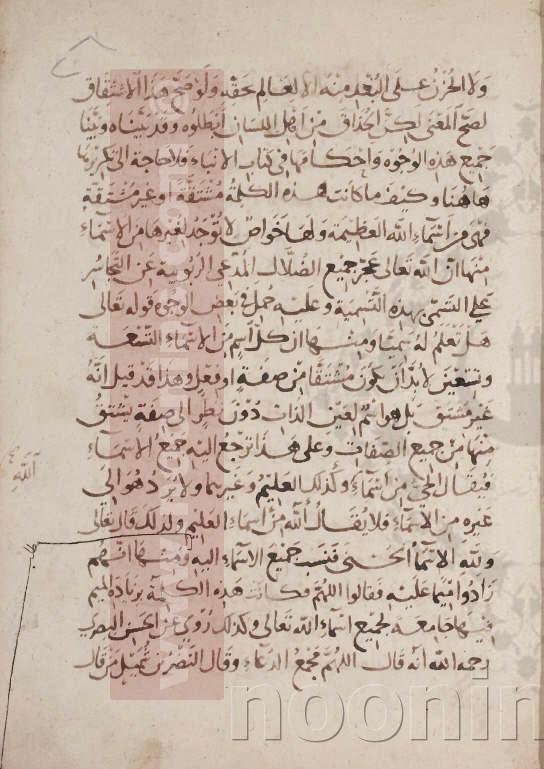 ولا الحزن على البعد منه الا لعالم بحقه ولو صح هذا الاشتقاق
لصح المعنى لكن الحذاق من اهل اللسان ابطلوه وقد بيناه وبينا
جميع هذه الوجوه واحكامها في كتاب الانباء فلا حاجة الى تكريره
هاهنا وكيف ما كانت هذه الكلمة مشتقة او غير مشتقة
فهي من اسماء الله العظيمة ولها خواص لا توجد لغيرها من الاسماء
منها ان الله تعالى عجز جميع الضلال المدعي الربوبية عن التجاسر
على التسمي بهذه التسمية وعليه حمل في بعض الوجوه قوله تعالى
هل تعلم له سميا ومنها ان كل اسم من الاسماء التسعة
وتسعين لا بد ان يكون مشتقا من صفة او فعل وهذا قد قيل انه
غير مشتق بل هو اسم لعين الذات دون نظر الى صفة يشتق
منها من جميع الصفات وعلى هذا ترجع اليه جميع الاسماء
فيقال الحي من اسماء وكذلك العليم وغيرهما ولا يرد هو الى
غيره من الاسماء فلا يقال الله من اسماء العليم ولذلك قال تعالى
ولله الاسماء الحسنى فنسب جميع الاسماء اليه ومنها انهم
زادوا ميما عليه فقالوا اللهم فكانت هذه الكلمة بزيادة الميم
فيها جامعة لجميع اسماء الله تعالى وكذلك روي عن الحسن البصري
رحمه الله انه قال اللهم مجمع الدعاء وقال النضر بن شميل من قال
الله
noonin